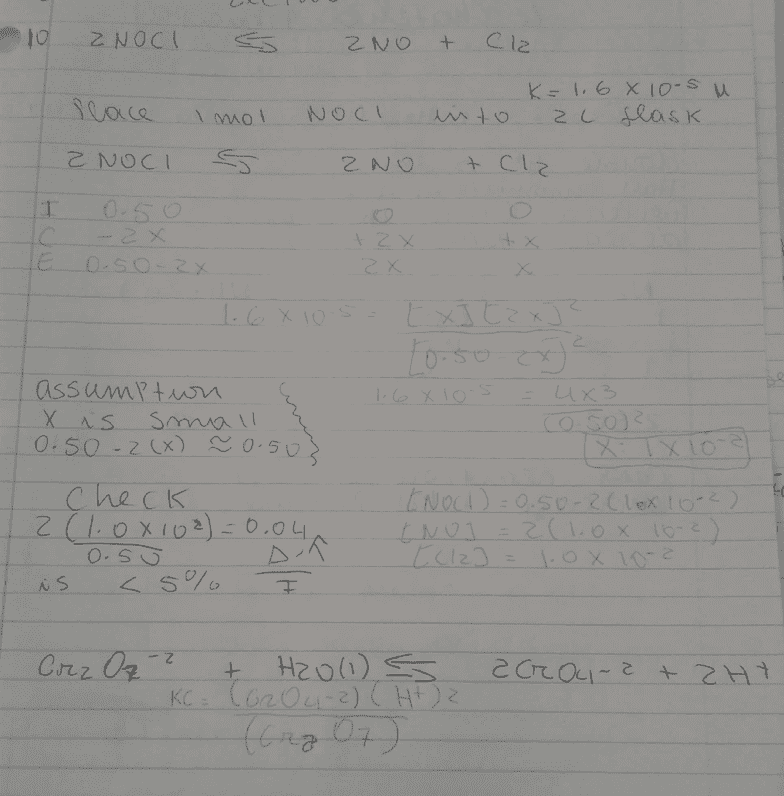 10 2NOCl ⇆ 2NO + Cl2
K = 1.6 x 10-5 M
Place 1 mol NOCl into 2L flask
2NOCl ⇆ 2NO + Cl2
I 0.50 0 0
C -2x +2x +x
E 0.50-2x 2x x
1.6 x 10-5 = [x][2x]²
[0.50 2x]²
assumption
x is small
0.50 - 2(x) ≈ 0.50
1.6 x 10-5 = 4x3
(0.50)2
x = 1 x 10-2
Check
2(1.0 x 10²) = 0.04
0.50
is < 5%
I
[NOCl) = 0.50-2(1.0x10-2)
[NO] = 2(1.0 x 10-2)
[Cl2] = 1.0 x 10-2
Cr2O7-2 + H2O(l) ⇆ 2CrO4-2 + 2H+
KC = (CrO4-2)(H+)2
(Cr2O7)